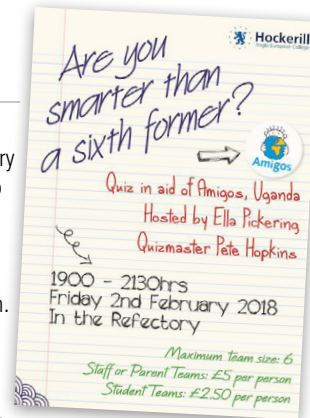 Hockerill
Anglo-European College
Are you
smarter than
a sixth former?
Amigos
Quiz in aid of Amigos, Uganda
Hosted by Ella Pickering
Quizmaster Pete Hopkins
1900 - 2130hrs
Friday 2nd February 2018
In the Refectory
Maximum team size: 6
Staff or Parent Teams: £5 per person
Student Teams: £2.50 per person